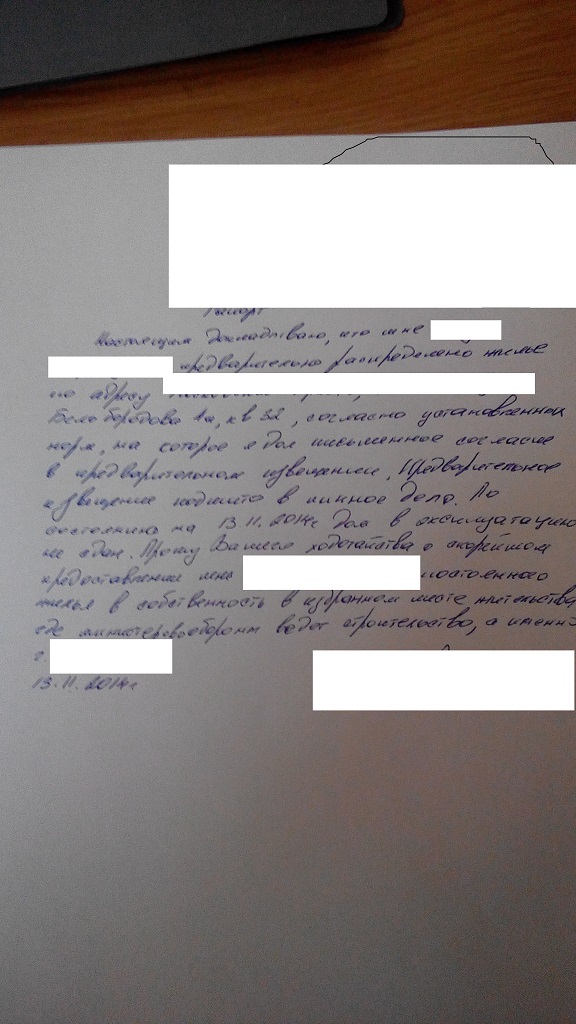 Рапорт
Настоящим докладываю, что мне
предварительно распределено жилье
по адресу
Белобородова 4а, кв 32, согласно установленных
норм, на которое я дал письменное согласие
в предварительном извещении. Предварительное
извещение подшито в личное дело. По
состоянию на 13.11.2014г дом в эксплуатацию
не сдан. Прошу Вашего ходатайства о скорейшем
предоставлении мне постоянного
жилья в собственность в избранном месте жительства
где министерство обороны ведет строительство, а именно
г.
13.11.2014г